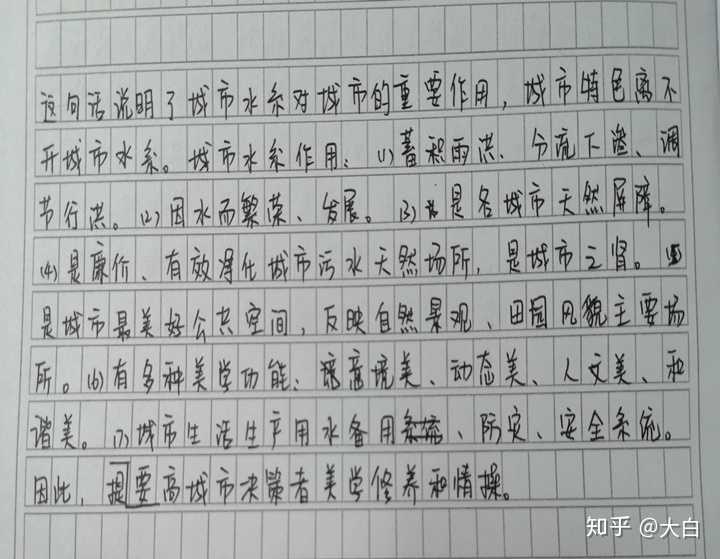 这句话说明了城市水系对城市的重要作用，城市特色离不
开城市水系。城市水系作用：(1)蓄积雨洪、分流下渗、调
节行洪。(2)因水而繁荣、发展。(3)是各城市天然屏障。
(4)是廉价、有效净化城市污水天然场所，是城市之肾。(5)
是城市最美好公共空间，反映自然景观、田园风貌主要场
所。(6)有多种美学功能：意境美、动态美、人文美、和
谐美。(7)城市生活生产用水备用系统、防灾、安全系统。
因此，要提高城市决策者美学修养和情操。
知乎 @大白